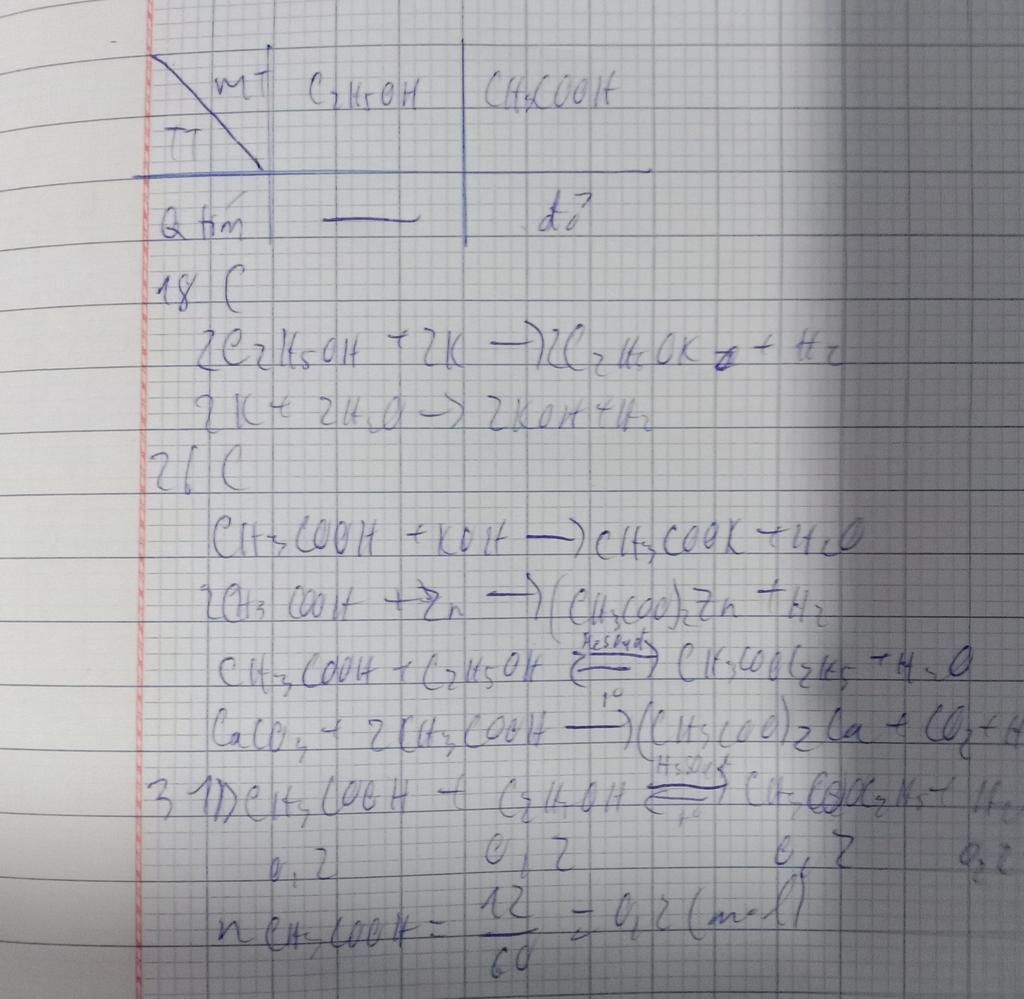 mT C2H5OH CH3COOH
TT
Q tím — đỏ
18 C
2C2H5OH + 2K → 2C2H5OK + H2
2K + 2H2O → 2KOH + H2
C
CH3COOH + KOH → CH3COOK + H2O
2CH3COOH + Zn → (CH3COO)2Zn + H2
CH3COOH + C2H5OH ⇌ CH3COOC2H5 + H2O
CaCO3 + 2CH3COOH → (CH3COO)2Ca + CO2 + H
CH3COOH + C2H5OH ⇌ CH3COOC2H5 + H2
0,2 0,2 0,2 0,2
nCH3COOH = 12/60 = 0,2 (mol)